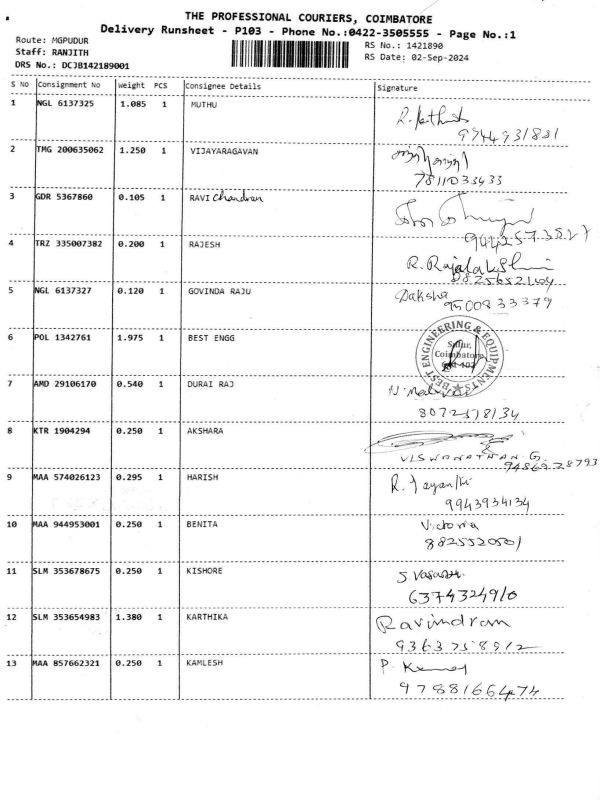 THE PROFESSIONAL COURIERS, COIMBATORE
Delivery Runsheet - P103 - Phone No.:0422-3505555 - Page No.:1
Route: MGPUDUR
Staff: RANJITH
DRS No.: DCJB142189001
RS No.: 1421890
RS Date: 02-Sep-2024
S No Consignment No Weight PCS Consignee Details Signature
1 NGL 6137325 1.085 1 MUTHU
9744931831
2 TMG 200635062 1.250 1 VIJAYARAGAVAN
7811033433
3 GDR 5367860 0.105 1 RAVI Chandran
9442573527
4 TRZ 335007382 0.200 1 RAJESH R. Rajalakshmi
5 NGL 6137327 0.120 1 GOVINDA RAJU Daksha
9500833379
6 POL 1342761 1.975 1 BEST ENGG
BEST ENGINEERING & EQUIPMENTS
Sulur,
Coimbatore
7 AMD 29106170 0.540 1 DURAI RAJ
8072578134
8 KTR 1904294 0.250 1 AKSHARA
VISWANATHAN G.
9486928793
9 MAA 574026123 0.295 1 HARISH R. Jayanthi
9943934134
10 MAA 944953001 0.250 1 BENITA Victoria
8825520501
11 SLM 353678675 0.250 1 KISHORE
6374324910
12 SLM 353654983 1.380 1 KARTHIKA Ravindran
9363758912
13 MAA 857662321 0.250 1 KAMLESH
9788166474